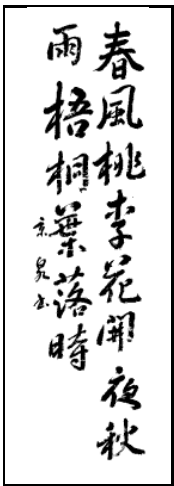 春風桃李花開夜秋
雨梧桐葉落時
京泉书